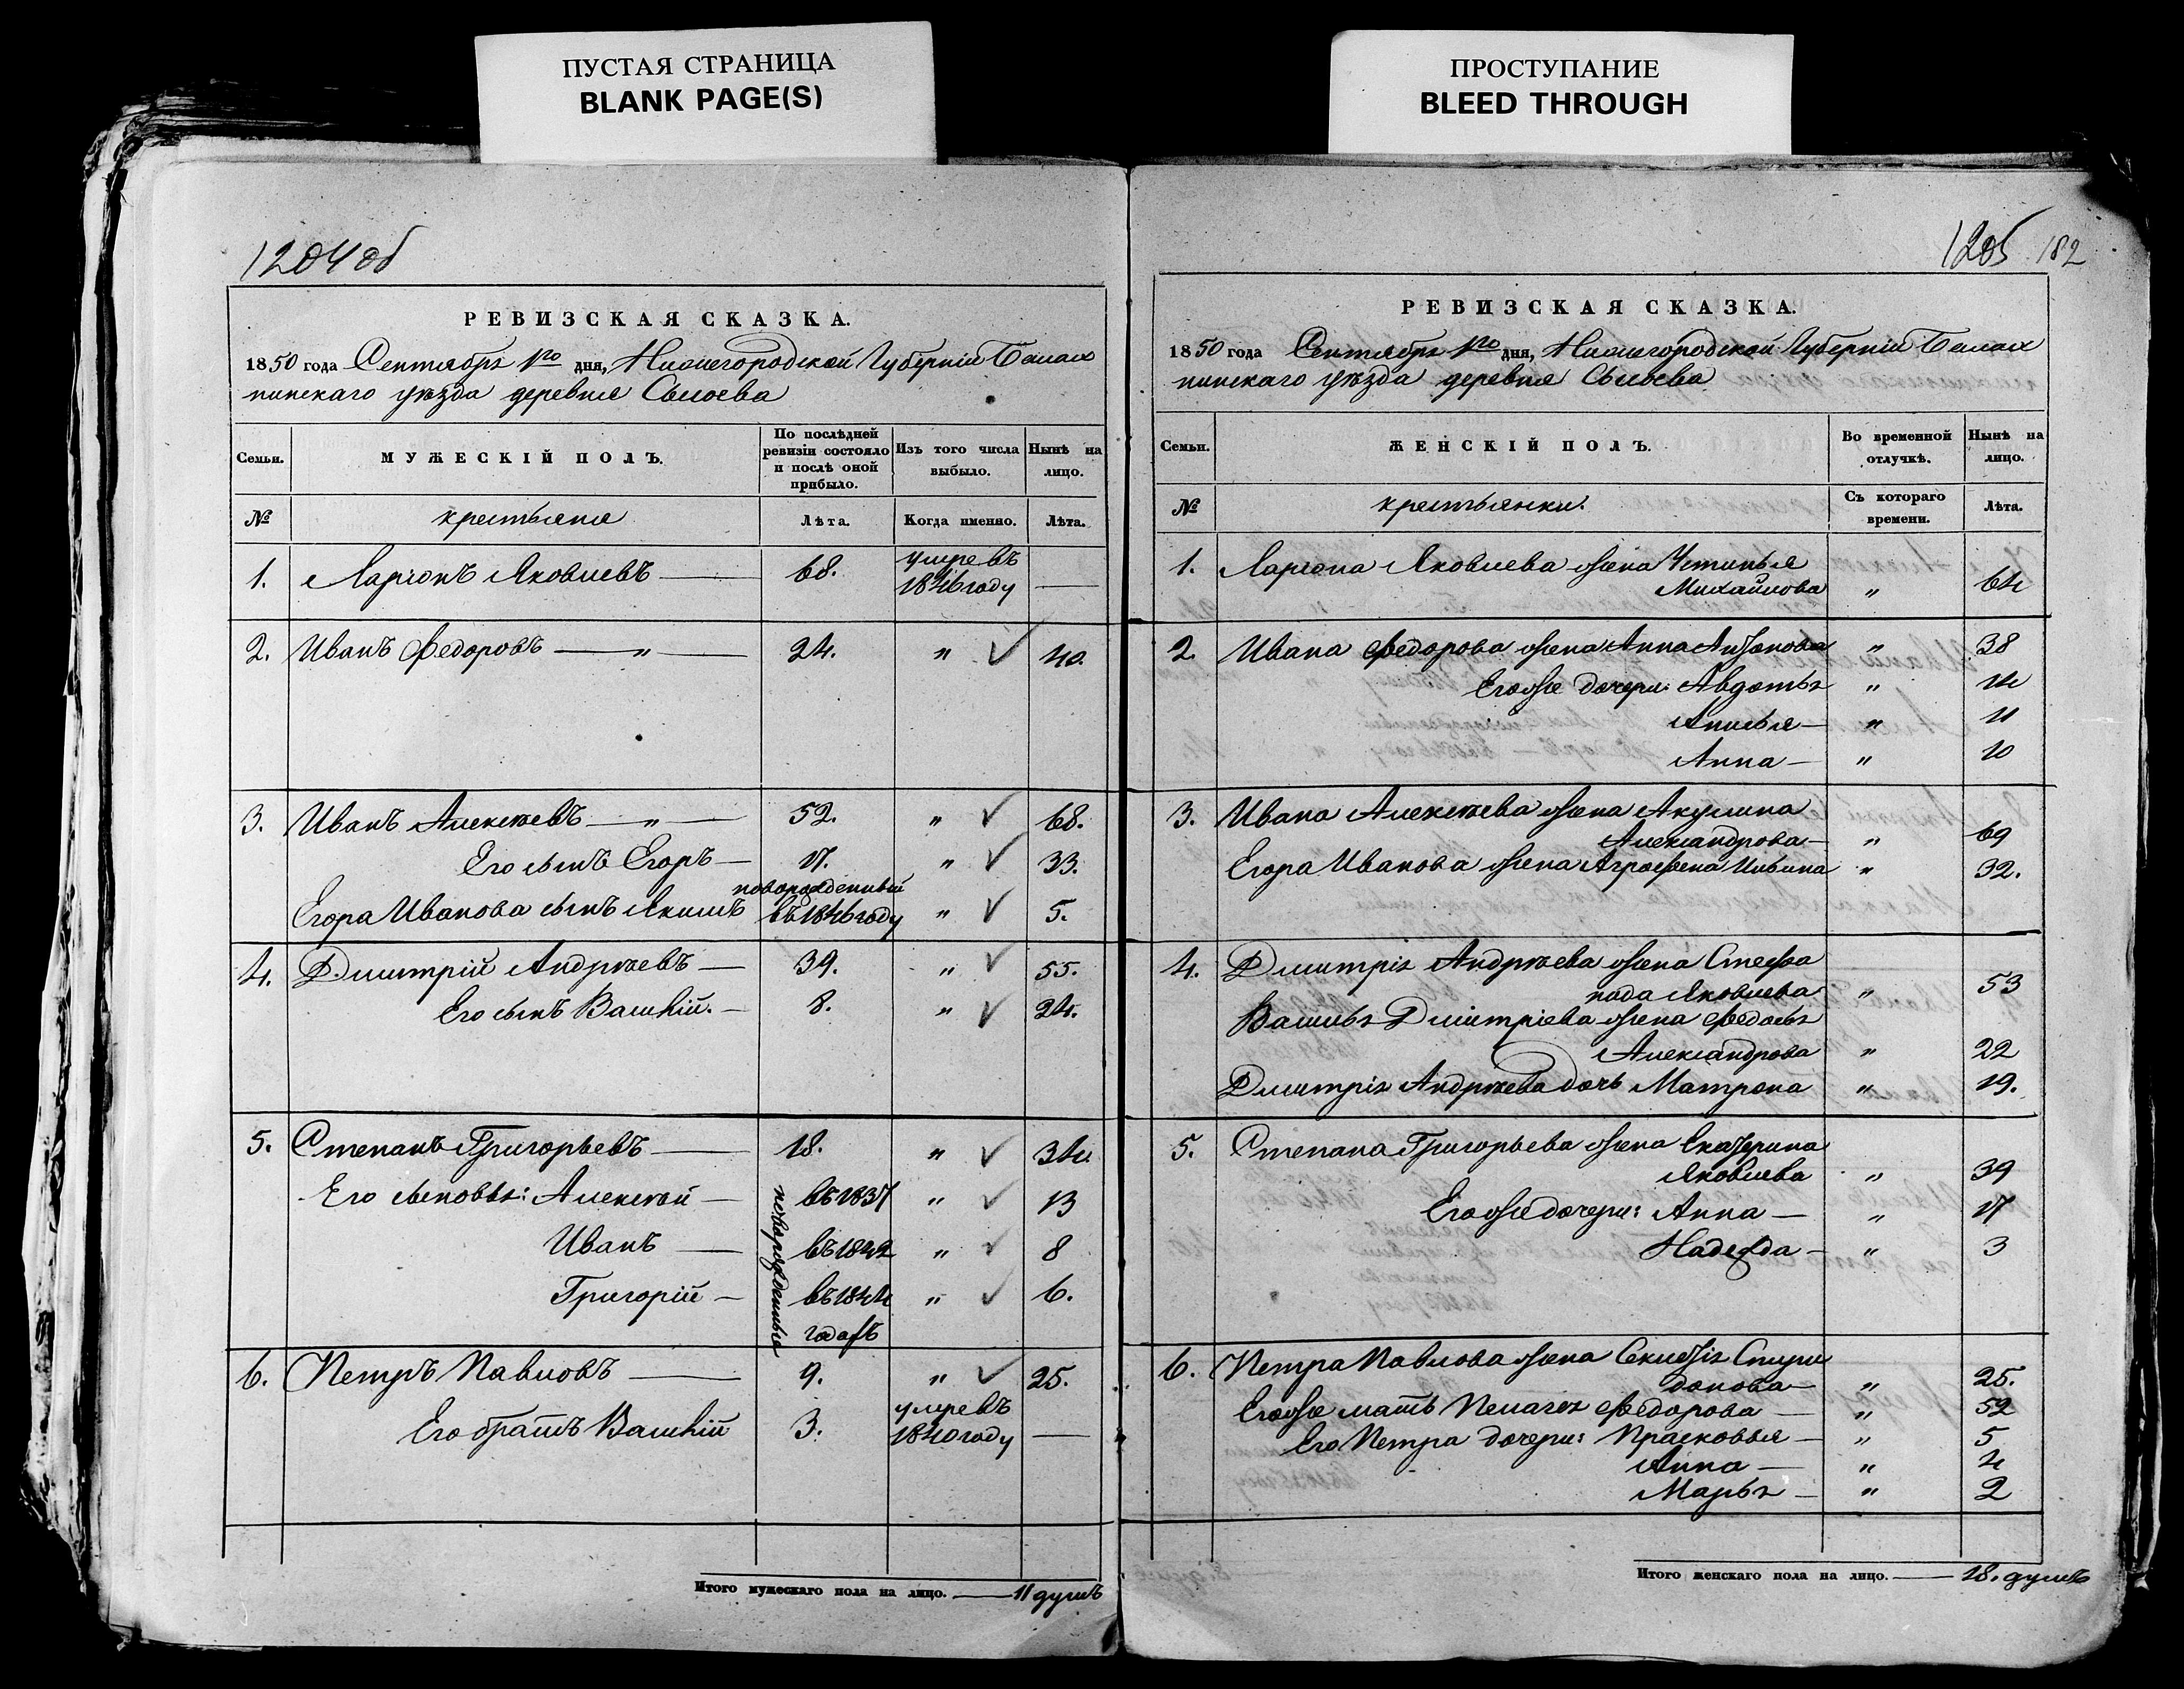 ПУСТАЯ СТРАНИЦА
BLANK PAGE(S)
ПРОСТУПАНИЕ
BLEED THROUGH
1204 об
РЕВИЗСКАЯ СКАЗКА.
1850 года Сентября 1го дня, Нижегородской Губерніи Балах
нинскаго уѣзда деревни
Семьи. МУЖЕСКІЙ ПОЛЪ. По послѣдней ревизіи состояло и послѣ оной прибыло. Изъ того числа выбыло. Нынѣ на лицо.
№ крестьяне Лѣта. Когда именно. Лѣта.
1. Ларіонъ Яковлевъ — 68. умре въ 1846 году —
2. Иванъ Федоровъ — " — 24. " ✓ 40.
3. Иванъ Алексѣевъ — " — 52. " ✓ 68.
Его сынъ Егоръ — 17. " ✓ 33.
Егора Иванова сынъ Якимъ новорожденный въ 1846 году " ✓ 5.
4. Дмитрій Андрѣевъ — 39. " ✓ 55.
Его сынъ Василій. — 8. " ✓ 24.
5. Степанъ Григорьевъ — 18. " ✓ 34.
Его сыновья: Алексѣй — новорожденные въ 1837 " ✓ 13
Иванъ — въ 1842 " ✓ 8
Григорій — въ 1844 " ✓ 6.
годахъ
6. Петръ Павловъ — 9. " ✓ 25.
Его братъ Василій 3. умре въ 1840 году —
Итого мужескаго пола на лицо. — 11 душъ
1205 182
РЕВИЗСКАЯ СКАЗКА.
1850 года Сентября 1го дня, Нижегородской Губерніи Балах
нинскаго уѣзда деревни
Семьи. ЖЕНСКІЙ ПОЛЪ. Во временной отлучкѣ. Нынѣ на лицо.
№ крестьянки. Съ котораго времени. Лѣта.
1. Ларіона Яковлева жена Устинья
Михайлова " 64
2. Ивана Федорова жена Анна Антонова " 38
Егоже дочери: Авдотья " 14
Анисья — " 11
Анна — " 10
3. Ивана Алексѣева жена Акулина
Александрова — " 69
Егора Иванова жена Аграфена Ильина " 32.
4. Дмитрія Андрѣева жена Стефа
нида Яковлева " 53
Василья Дмитріева жена Федосья
Александрова " 22
Дмитрія Андрѣева дочь Матрона " 19.
5. Степана Григорьева жена Екатерина
Яковлева " 39
Егоже дочери: Анна — " 17
Надежда — " 3
6. Петра Павлова жена Спири
донова — " 25.
Егоже мать Пелагея Федорова — " 52
Его Петра дочери: Прасковья — " 5
Анна — " 4
Марья — " 2
Итого женскаго пола на лицо. — 18. душъ